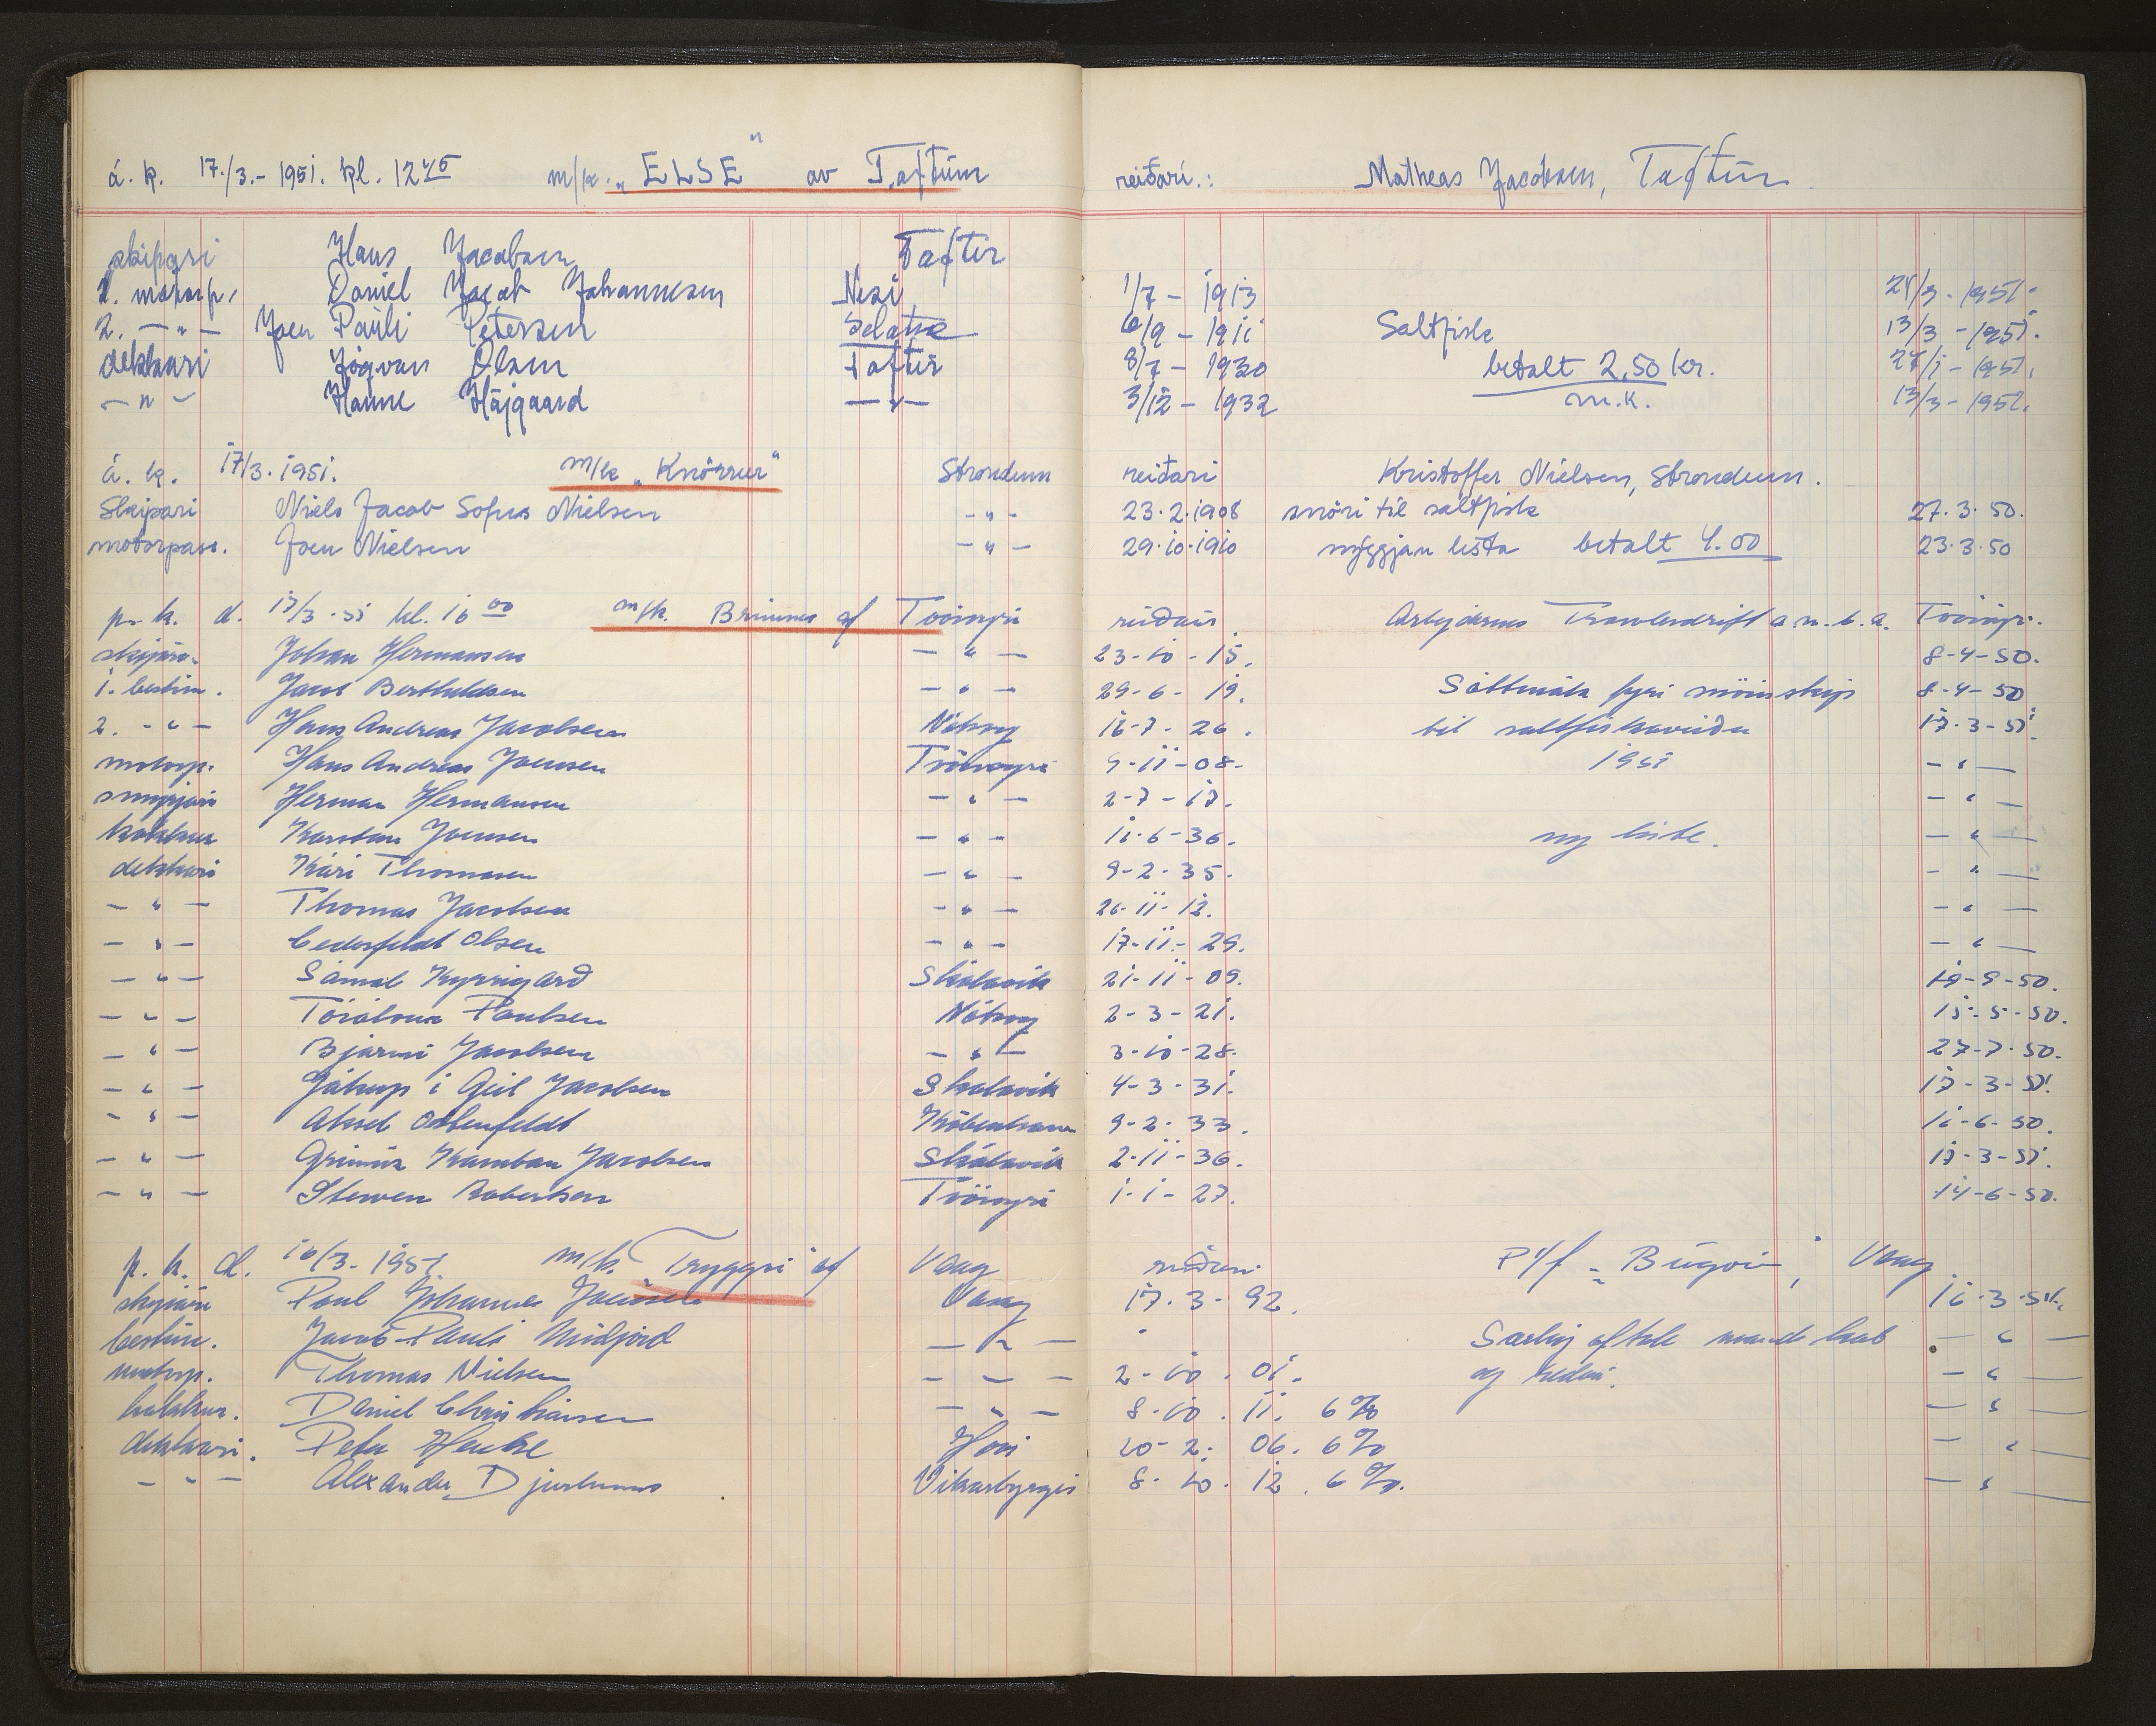 á. k. 17./3.- 1951. kl. 12 45 m/k. „ELSE" av Taftum reiðari.: Matheas Jacobsen, Taftum
skipari Hans Jacobsen Taftir
1. motorp. Daniel Jacob Johannesen Nesi 1/7 - 1913 - 1951.
2. — " — Joen Páuli Petersen Selatræ 6/9 - 1911 Saltfisk 13/3 - 1951.
dekkari Jógvan Olsen Taftir 8/7 - 1930 betalt 2,50 kr. - 1951.
— " — Hanne Højgaard — " — 3/12 - 1932 m.k. 13/3 - 1951.
á. k. 17/3. 1951. m/k „Knörrur" Strondum reiðari Kristoffer Nielsen, Strondum.
Skipari Niels Jacob Sofus Nielsen — " — 23.2.1908 snöri til saltfisk 27.3.50.
motorpass. Joen Nielsen — " — 29.10.1910 nýggjan lista betalt 4.00 23.3.50
p. k. d. 17/3 - 51 kl. 16 00 m/k. Brimnes af Tvöroyri reiðari Arbejdernes Trawlerdrift a.m.b.a. Tvöroyri.
skipari. Johan Hermansen — " — 23-10-15. 8-4-50.
1. bestim. Jacob Berthaldsen — " — 29-6-19. Sáttmála fyri snöriskip 8-4-50
2. — " — Hans Andreas Jacobsen Nólsoy 16-7-26. til saltfiskaveiðu 17-3-51.
motorp. Hans Andreas Joensen Tvöroyri 9-11-08. 1951 — " —
smyrjari Herman Hermansen — " — 2-7-17. — " —
kokkur Karstan Joensen — " — 11-6-36. ny liste. — " —
dekkari Kári Thomasen — " — 9-2-35. — " —
— " — Thomas Jacobsen — " — 26-11-12. — " —
— " — Cederfeldt Olsen — " — 17-11-29. — " —
— " — Sámal Skálavík 21-11-09. 19-9-50.
— " — Tóralvur Paulsen Nólsoy 2-3-21. 15-5-50.
— " — Bjarni Jacobsen — " — 3-10-28. 27-7-50.
— " — Jákup í Gil Jacobsen Skálavík 4-3-31. 17-3-51.
— " — Aksel Ostenfeldt København 9-2-33. 16-6-50.
— " — Grímur Kamban Jacobsen Skálavík 2-11-36. 17-3-51.
— " — Steven Robertson Tvöroyri 1-1-27. 14-6-50.
p. k. d. 16/3-1951 m/k. „Tryggvi" af Vaag reiðari P/f „Búgvin", Vaag
skipari Poul Johannes Joensen Vaag 17.3.92. 16.3.51.
bestim. Jacob Pauli Midjord — " — Særlig aftale mandskab — " —
motorp. Thomas Nielsen — — — 2-10.01. og rederi. — " —
kokkur. Daniel Christiansen — " — 8.10.11. 6% — " —
dekkari. Peter Hentze Hovi 20-2.06. 6% — " —
— " — Alexander Djurhuus Vikarbyrgi 8.10.12. 6%. — " —